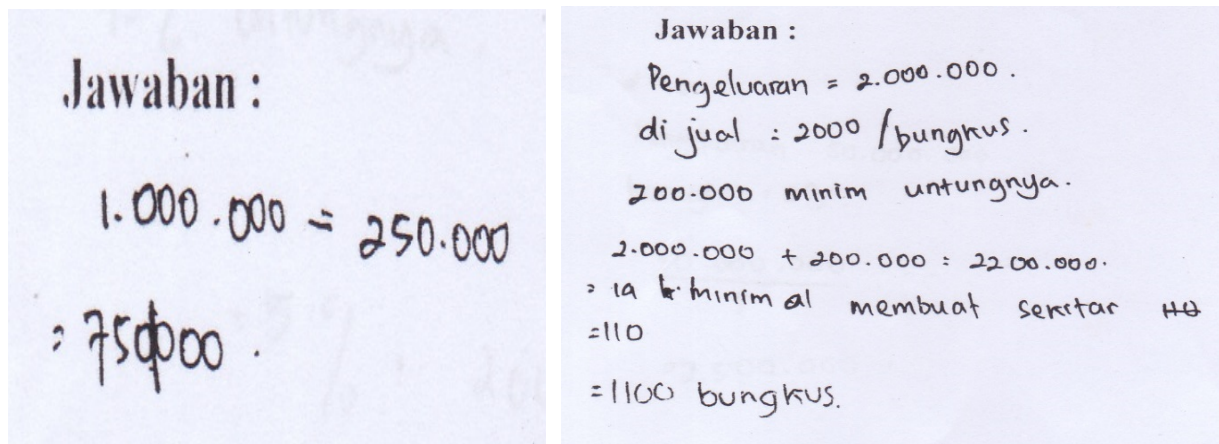 Jawaban :
1.000.000 = 250.000
= 750000.
Jawaban :
Pengeluaran = 2.000.000.
di jual : 2000 / bungkus.
200.000 minim untungnya.
2.000.000 + 200.000 = 2200.000.
= ia minimal membuat sekitar
=110
=1100 bungkus.